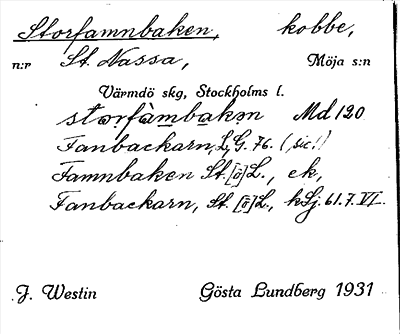 Storfamnbaken, kobbe,
n:r St. Nassa, Möja s:n
Värmdö skg, Stockholms l.
storfàmbakɘn Md 120
Fanbackarn, L.G. 76. (sic!)
Famnbaken St. [ö] L., ek,
Fanbackarn, St. [ö] L., kSj. 61.7.VI.
J. Westin Gösta Lundberg 1931